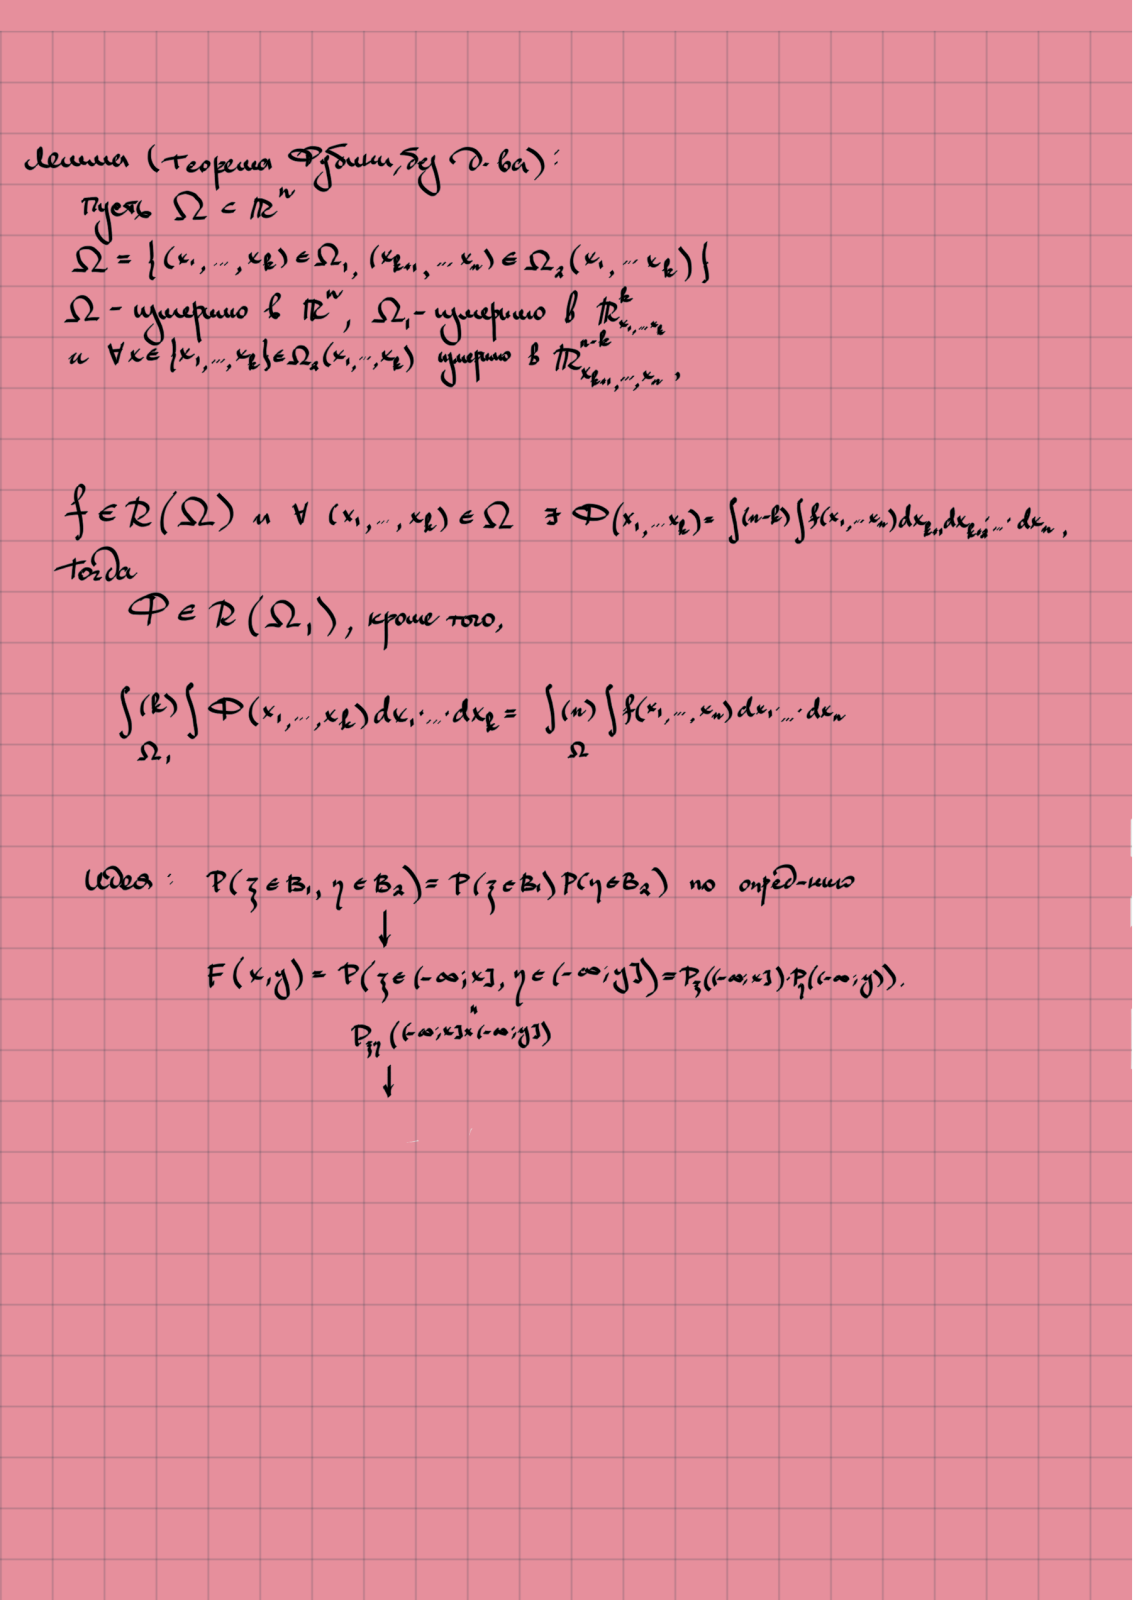 Лемма (Теорема Фубини, без д-ва):
Пусть Ω ⊂ ℝⁿ
Ω = {(x₁, ..., xₖ) ∈ Ω₁, (xₖ₊₁, ... xₙ) ∈ Ω₂(x₁, ... xₖ)}
Ω - измеримо в ℝⁿ, Ω₁ - измеримо в ℝᵏ_{x₁, ... xₖ}
и ∀x ∈ {x₁, ..., xₖ} ∈ Ω₂(x₁, ..., xₖ) измеримо в ℝⁿ⁻ᵏ_{xₖ₊₁, ..., xₙ},
f ∈ R(Ω) и ∀ (x₁, ..., xₖ) ∈ Ω ∃ Φ(x₁, ... xₖ) = ∫(n-k)∫ f(x₁, ... xₙ) dxₖ₊₁ dxₖ₊₂ · ... · dxₙ,
тогда
Φ ∈ R(Ω₁), кроме того,
∫(k)∫ Φ(x₁, ..., xₖ) dx₁ · ... · dxₖ = ∫(n)∫ f(x₁, ..., xₙ) dx₁ · ... · dxₙ
Ω₁ Ω
Идея: P(ξ ∈ B₁, η ∈ B₂) = P(ξ ∈ B₁) P(η ∈ B₂) по опред-нию
↓
F(x,y) = P(ξ ∈ (-∞; x], η ∈ (-∞; y]) = P_ξ((-∞; x]) · P_η((-∞; y)).
"
P_ξη ((-∞; x] × (-∞; y])
↓